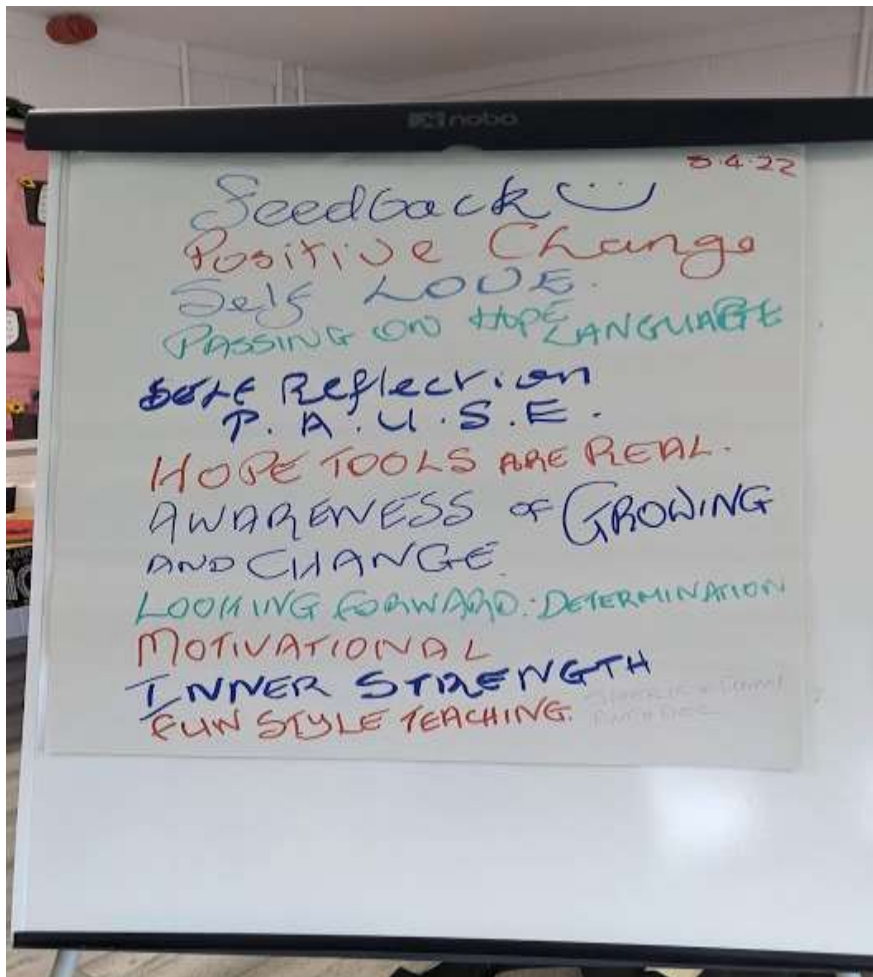 nobo
5.4.22
Feedback
Positive Change
Self LOVE.
PASSING ON HOPE LANGUAGE
SELF Reflection
P.A.U.S.E.
HOPE TOOLS ARE REAL.
AWARENESS OF GROWING
AND CHANGE.
LOOKING FORWARD. DETERMINATION
MOTIVATIONAL
INNER STRENGTH
FUN STYLE TEACHING.